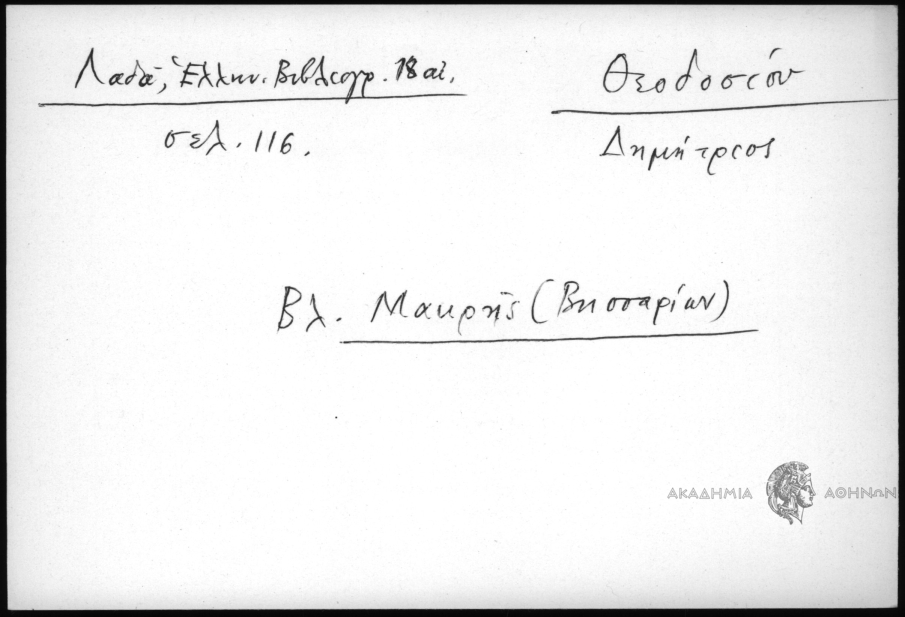 Λαδᾶ, Ἑλλην. Βιβλιογρ. 18 αἰ.
σελ. 116.
Θεοδοσίου
Δημήτριος
Βλ. Μακρῆς (Βησσαρίων)
ΑΚΑΔΗΜΙΑ ΑΘΗΝΩΝ